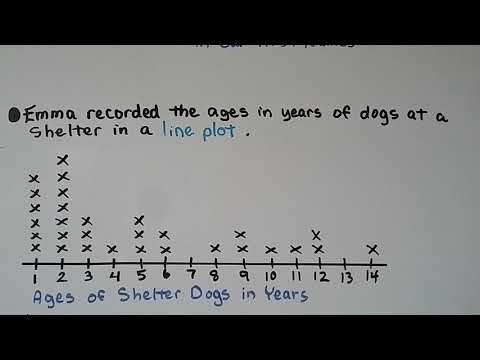 Emma recorded the ages in years of dogs at a
Shelter in a line plot.
1 2 3 4 5 6 7 8 9 10 11 12 13 14
Ages of Shelter Dogs in Years